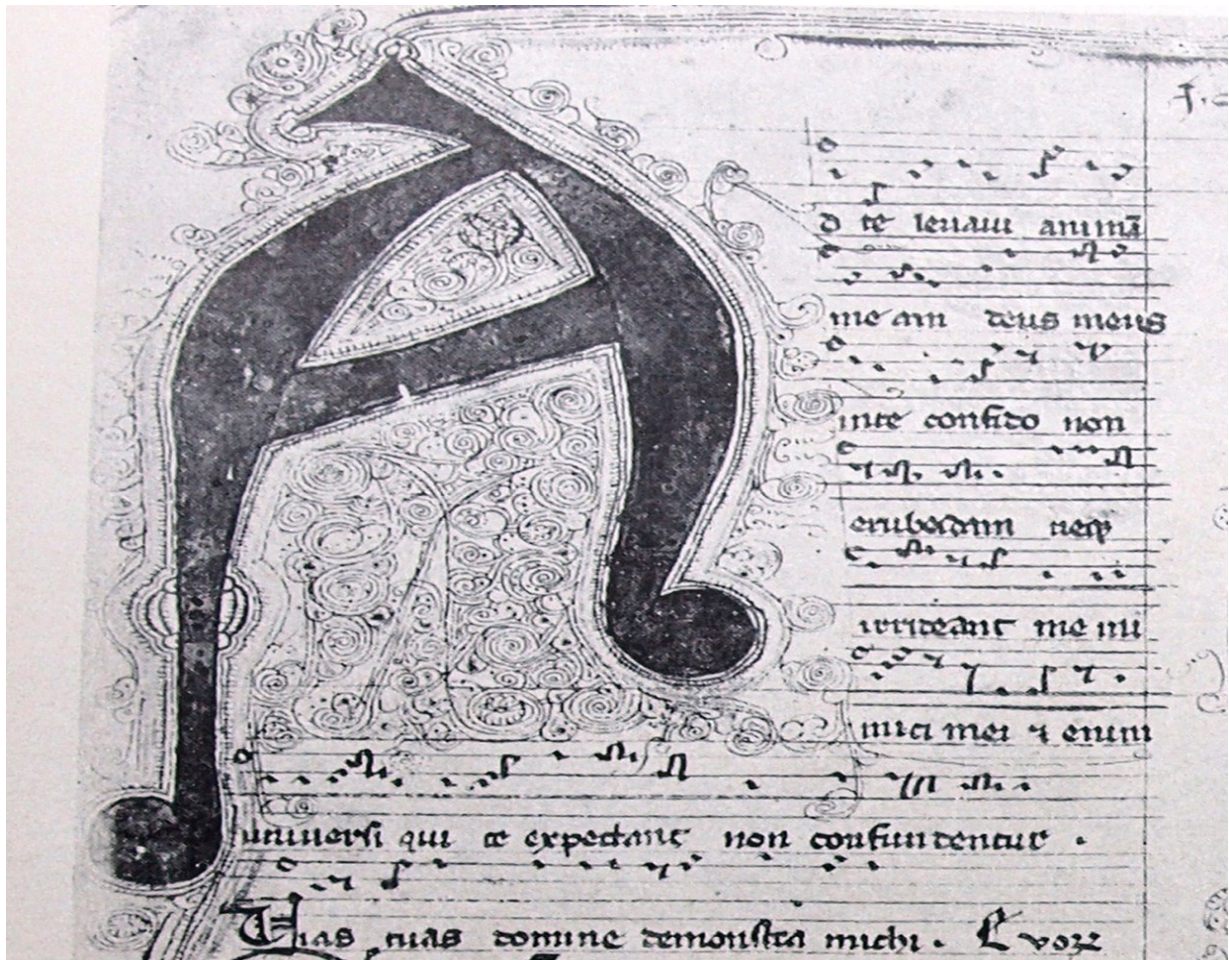 A
D te leuaui animā
meam deus meus
in te confido non
erubescam neqꝫ
irrideant me ini
mici mei ⁊ enim
uniuersi qui te expectant non confundentur .
Vias tuas domine demonstra michi . E voꝝ